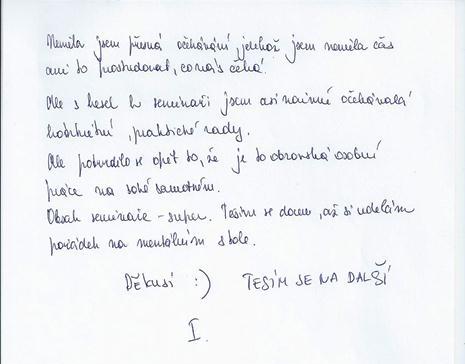 Neměla jsem přesná očekávání, jelikož jsem neměla čas
ani to prostudovat, co nás čeká.
Ale s hesel k semináři jsem asi naivně očekávala
konkrétní, praktické rady.
Ale potvrdilo se opět to, že je to obrovská osobní
práce na sobě samotném.
Obsah semináře - super. Těším se domu, až si udělám
pořádek na mentálním stole.
Děkuji :) TĚSÍM SE NA DALŠÍ
I.